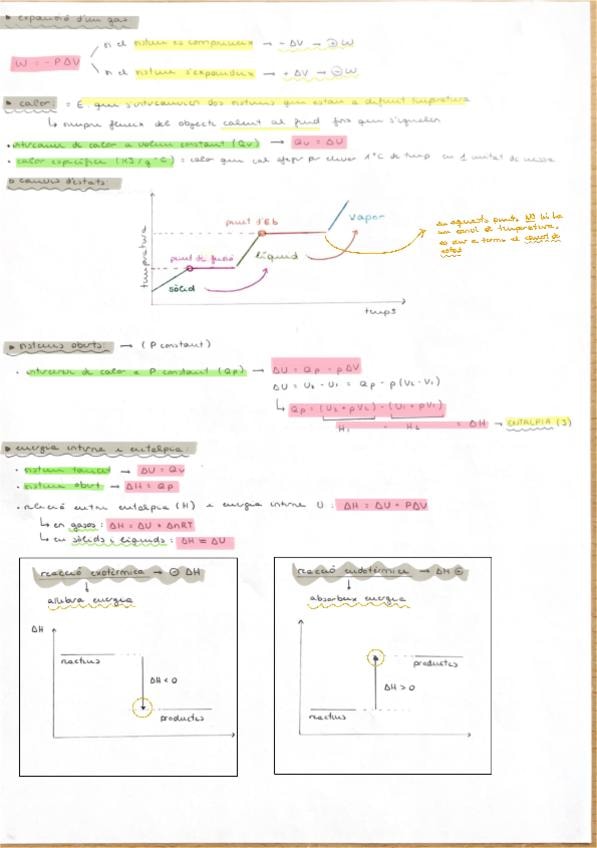 ▶ expansió d'un gas
W = - P ΔV
si el sistema es comprimeix → - ΔV → ⊕ W
si el sistema s'expandeix → + ΔV → ⊖ W
▶ calor: = E que s'intercanvien dos sistemes que estan a diferent temperatura
↳ sempre flueix del objecte calent al fred fins que s'igualen
• intercanvi de calor a volum constant (Qv) → Qv = ΔU
• calor específica (KJ/g°C) = calor que cal per elevar 1°C de temp en 1 unitat de massa
canvis d'estats:
temperatura
sòlid
punt de fusió
líquid
punt d'Eb
vapor
temps
en aquests punts, NO hi ha
un canvi de temperatura,
es dur a terme el canvi de
estat
▶ sistemes oberts: → (P constant)
• intercanvi de calor a P constant (Qp) → ΔU = Qp - pΔV
ΔU = U2 - U1 = Qp - p(V2 - V1)
↳ Qp = (U2 + pV2) - (U1 + pV1)
H1 - H2 = ΔH → ENTALPIA (J)
▶ energia interna i entalpia:
• sistema tancat → ΔU = Qv
• sistema obert → ΔH = Qp
• relació entre entalpia (H) i energia interna U: ΔH = ΔU + PΔV
↳ en gasos: ΔH = ΔU + ΔnRT
↳ en sòlids i líquids: ΔH = ΔU
reacció exotèrmica → ⊖ ΔH
allibra energia
ΔH
reactius
ΔH < 0
productes
reacció endotèrmica → ΔH ⊕
absorbeix energia
productes
ΔH > 0
reactius